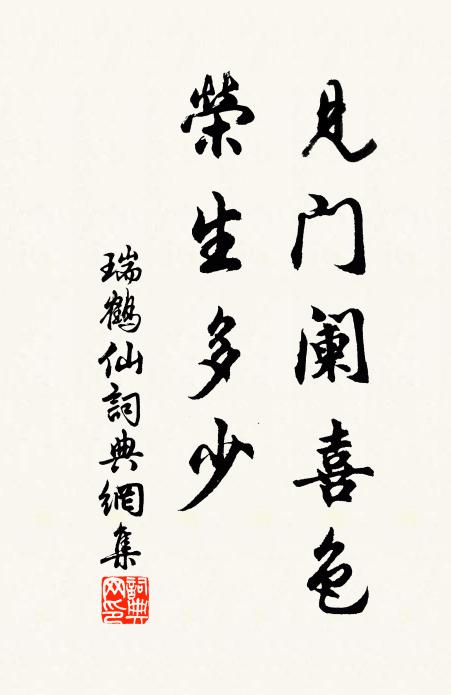 见门阑喜色
榮生多少
瑞鶴仙詞典網集
詞典网印